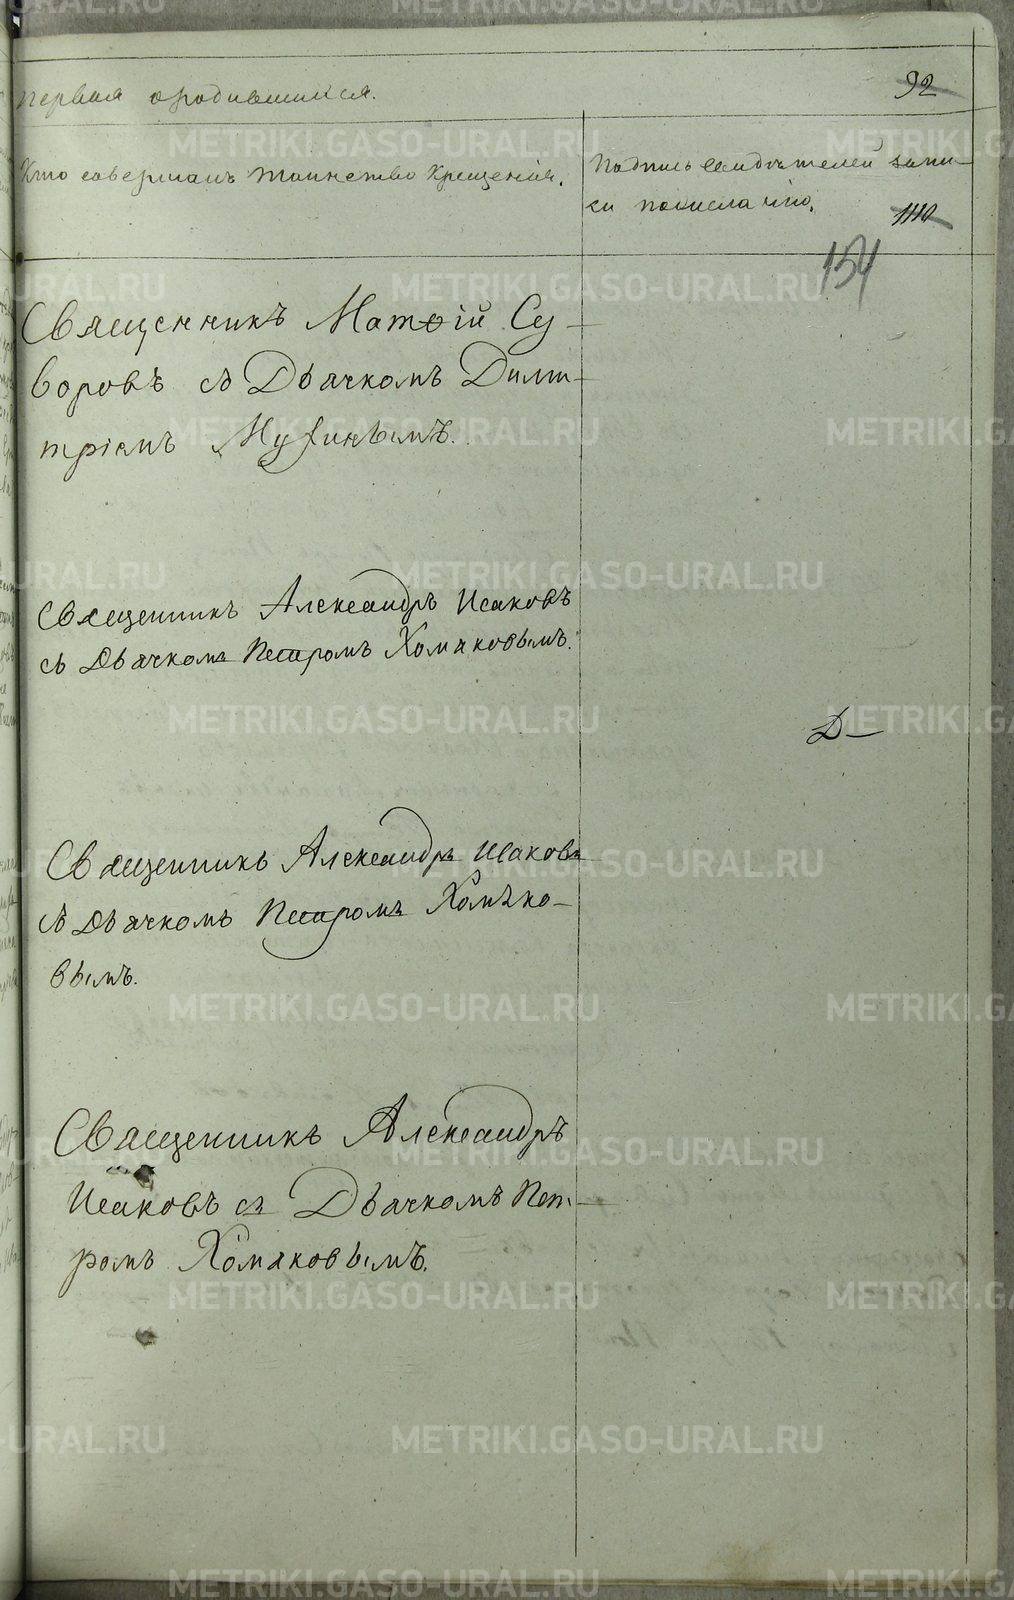 первая ородившихся.
92
Кто совершалъ таинство Крещения.
Подпись свидѣтелей запи-
си пожеланию.
1110
154
Священникъ Матѳій Су-
воровъ съ Дьячкомъ Дими-
тріемъ Мухинымъ.
Священникъ Александръ Исаковъ
съ Дьячкомъ Петромъ Хомяковымъ.
Д-
Священникъ Александръ Исаковъ
съ Дьячкомъ Петромъ Хомяко-
вымъ.
Священникъ Александръ
Исаковъ съ Дьячкомъ Пет-
ромъ Хомяковымъ.
METRIKI.GASO-URAL.RU